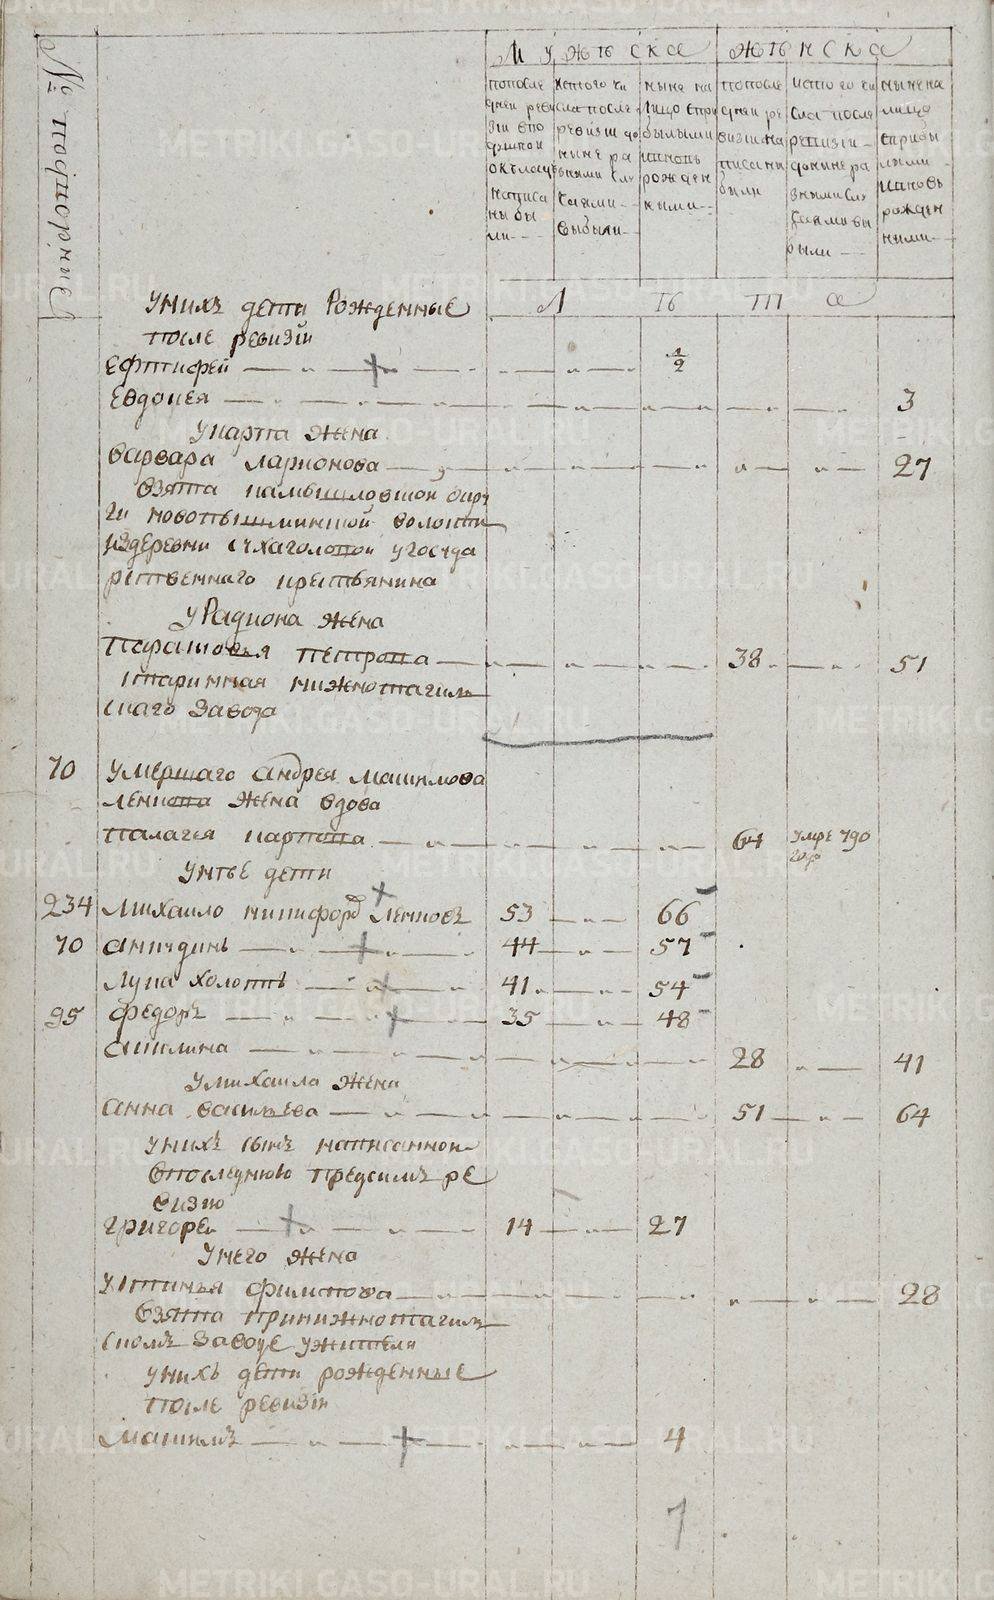 № подворные
Мужеска Женска
по последней ревизии в подушной оклад написаны были
ис того числа после ревизии до ныне разными случаями выбыли
ныне на лицо с прибылыми и вновь рожденными
по последней ревизии написаны были
ис того числа после ревизии до ныне разными случаями выбыли
ныне на лицо с прибылыми и вновь рожденными
Л Ѣ Т А
у них дети рожденные
после ревизии
Ефтифей 1/2
Евдокея 3
у Карпа жена
Варвара Ларионова 27
взята Камышловской окру
ги Новопышминской волости
из деревни Сухаголо у госуда
рственнаго крестьянина
у Радиона жена
Парасковья Петрова 38 51
старинная Нижнотагиль
скаго завода
70 умершаго Андрея Максимова
Ленкова жена вдова
Палагея Карпова 64 умре 790 году
у нее дети
234 Михайло Никифоръ Ленковъ 53 66
70 Аникудинъ 44 57
Лука Холостъ 41 54
95 Федоръ 35 48
Акилина 28 41
у Михаила жена
Анна Васильева 51 64
у них сынъ написанной
в последнюю пред симъ ре
визию
Григорей 14 27
у него жена
Устинья Филипова 28
взята при Нижнотагиль
скомъ заводе у жителя
у нихъ дети рожденные
после ревизии
Максимъ 4
7
METRIKI.GASO-URAL.RU